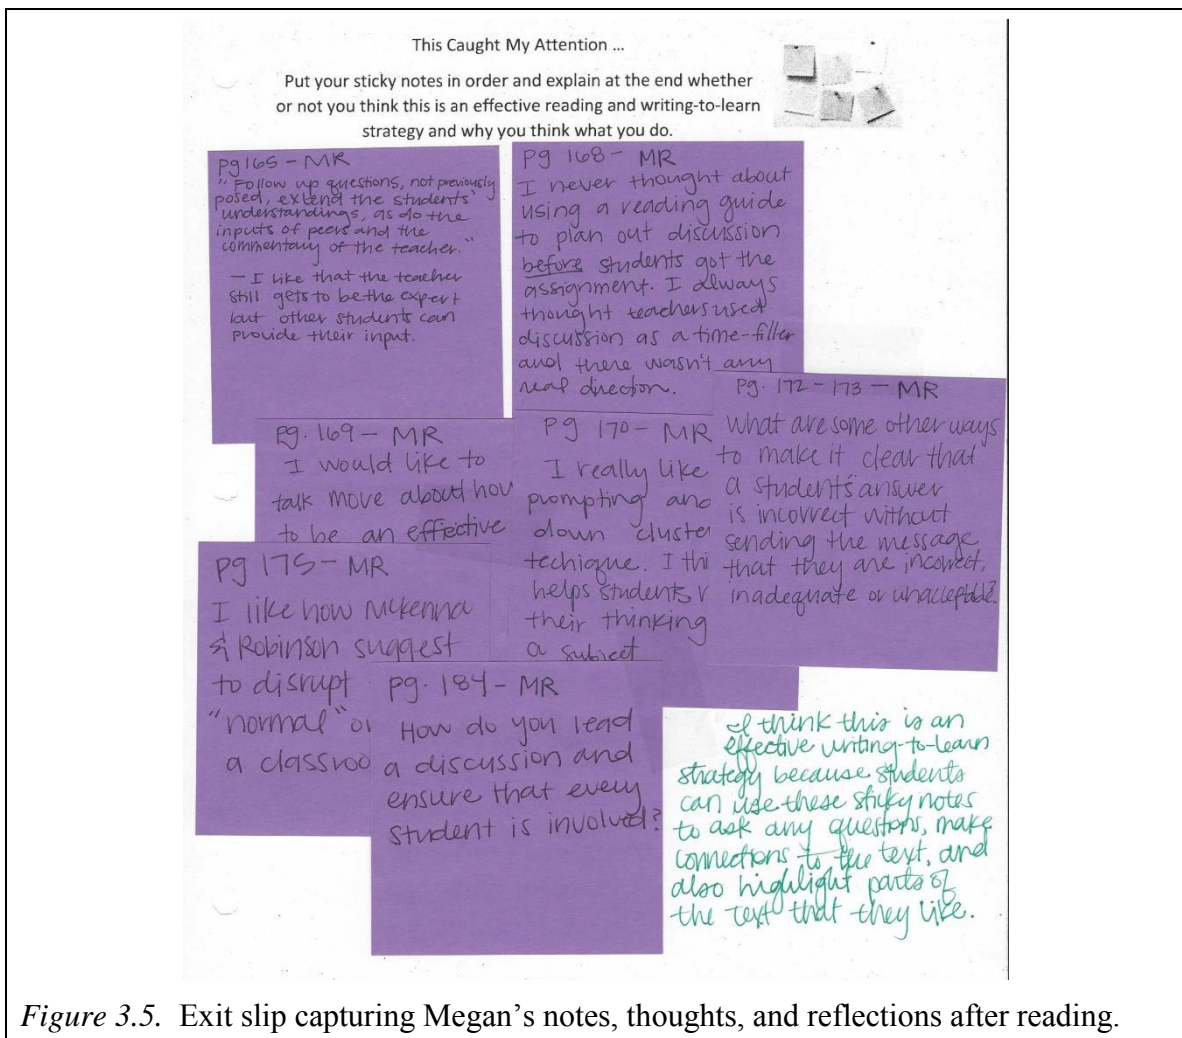 This Caught My Attention ...
Put your sticky notes in order and explain at the end whether
or not you think this is an effective reading and writing-to-learn
strategy and why you think what you do.
pg 165 - MR
"Follow up questions, not previously
posed, extend the students'
understandings, as do the
inputs of peers and the
commentary of the teacher."
- I like that the teacher
still gets to be the expert
but other students can
provide their input.
pg 168 - MR
I never thought about
using a reading guide
to plan out discussion
before students got the
assignment. I always
thought teachers used
discussion as a time-filler
and there wasn't any
real direction.
pg. 169 - MR
I would like to
talk move about how
to be an effective
pg 170 - MR
I really like
prompting and
down cluster
techique. I thi
helps students
their thinking
a subject
pg. 172 - 173 - MR
What are some other ways
to make it clear that
a students' answer
is incorrect without
sending the message
that they are incorrect,
inadequate or unacceptable?
pg 175 - MR
I like how McKenna
& Robinson suggest
to disrupt
"normal" or
a classroo
pg. 184 - MR
How do you lead
a discussion and
ensure that every
student is involved?
I think this is an
effective writing-to-learn
strategy because students
can use these sticky notes
to ask any questions, make
connections to the text, and
also highlight parts of
the text that they like.
Figure 3.5. Exit slip capturing Megan's notes, thoughts, and reflections after reading.